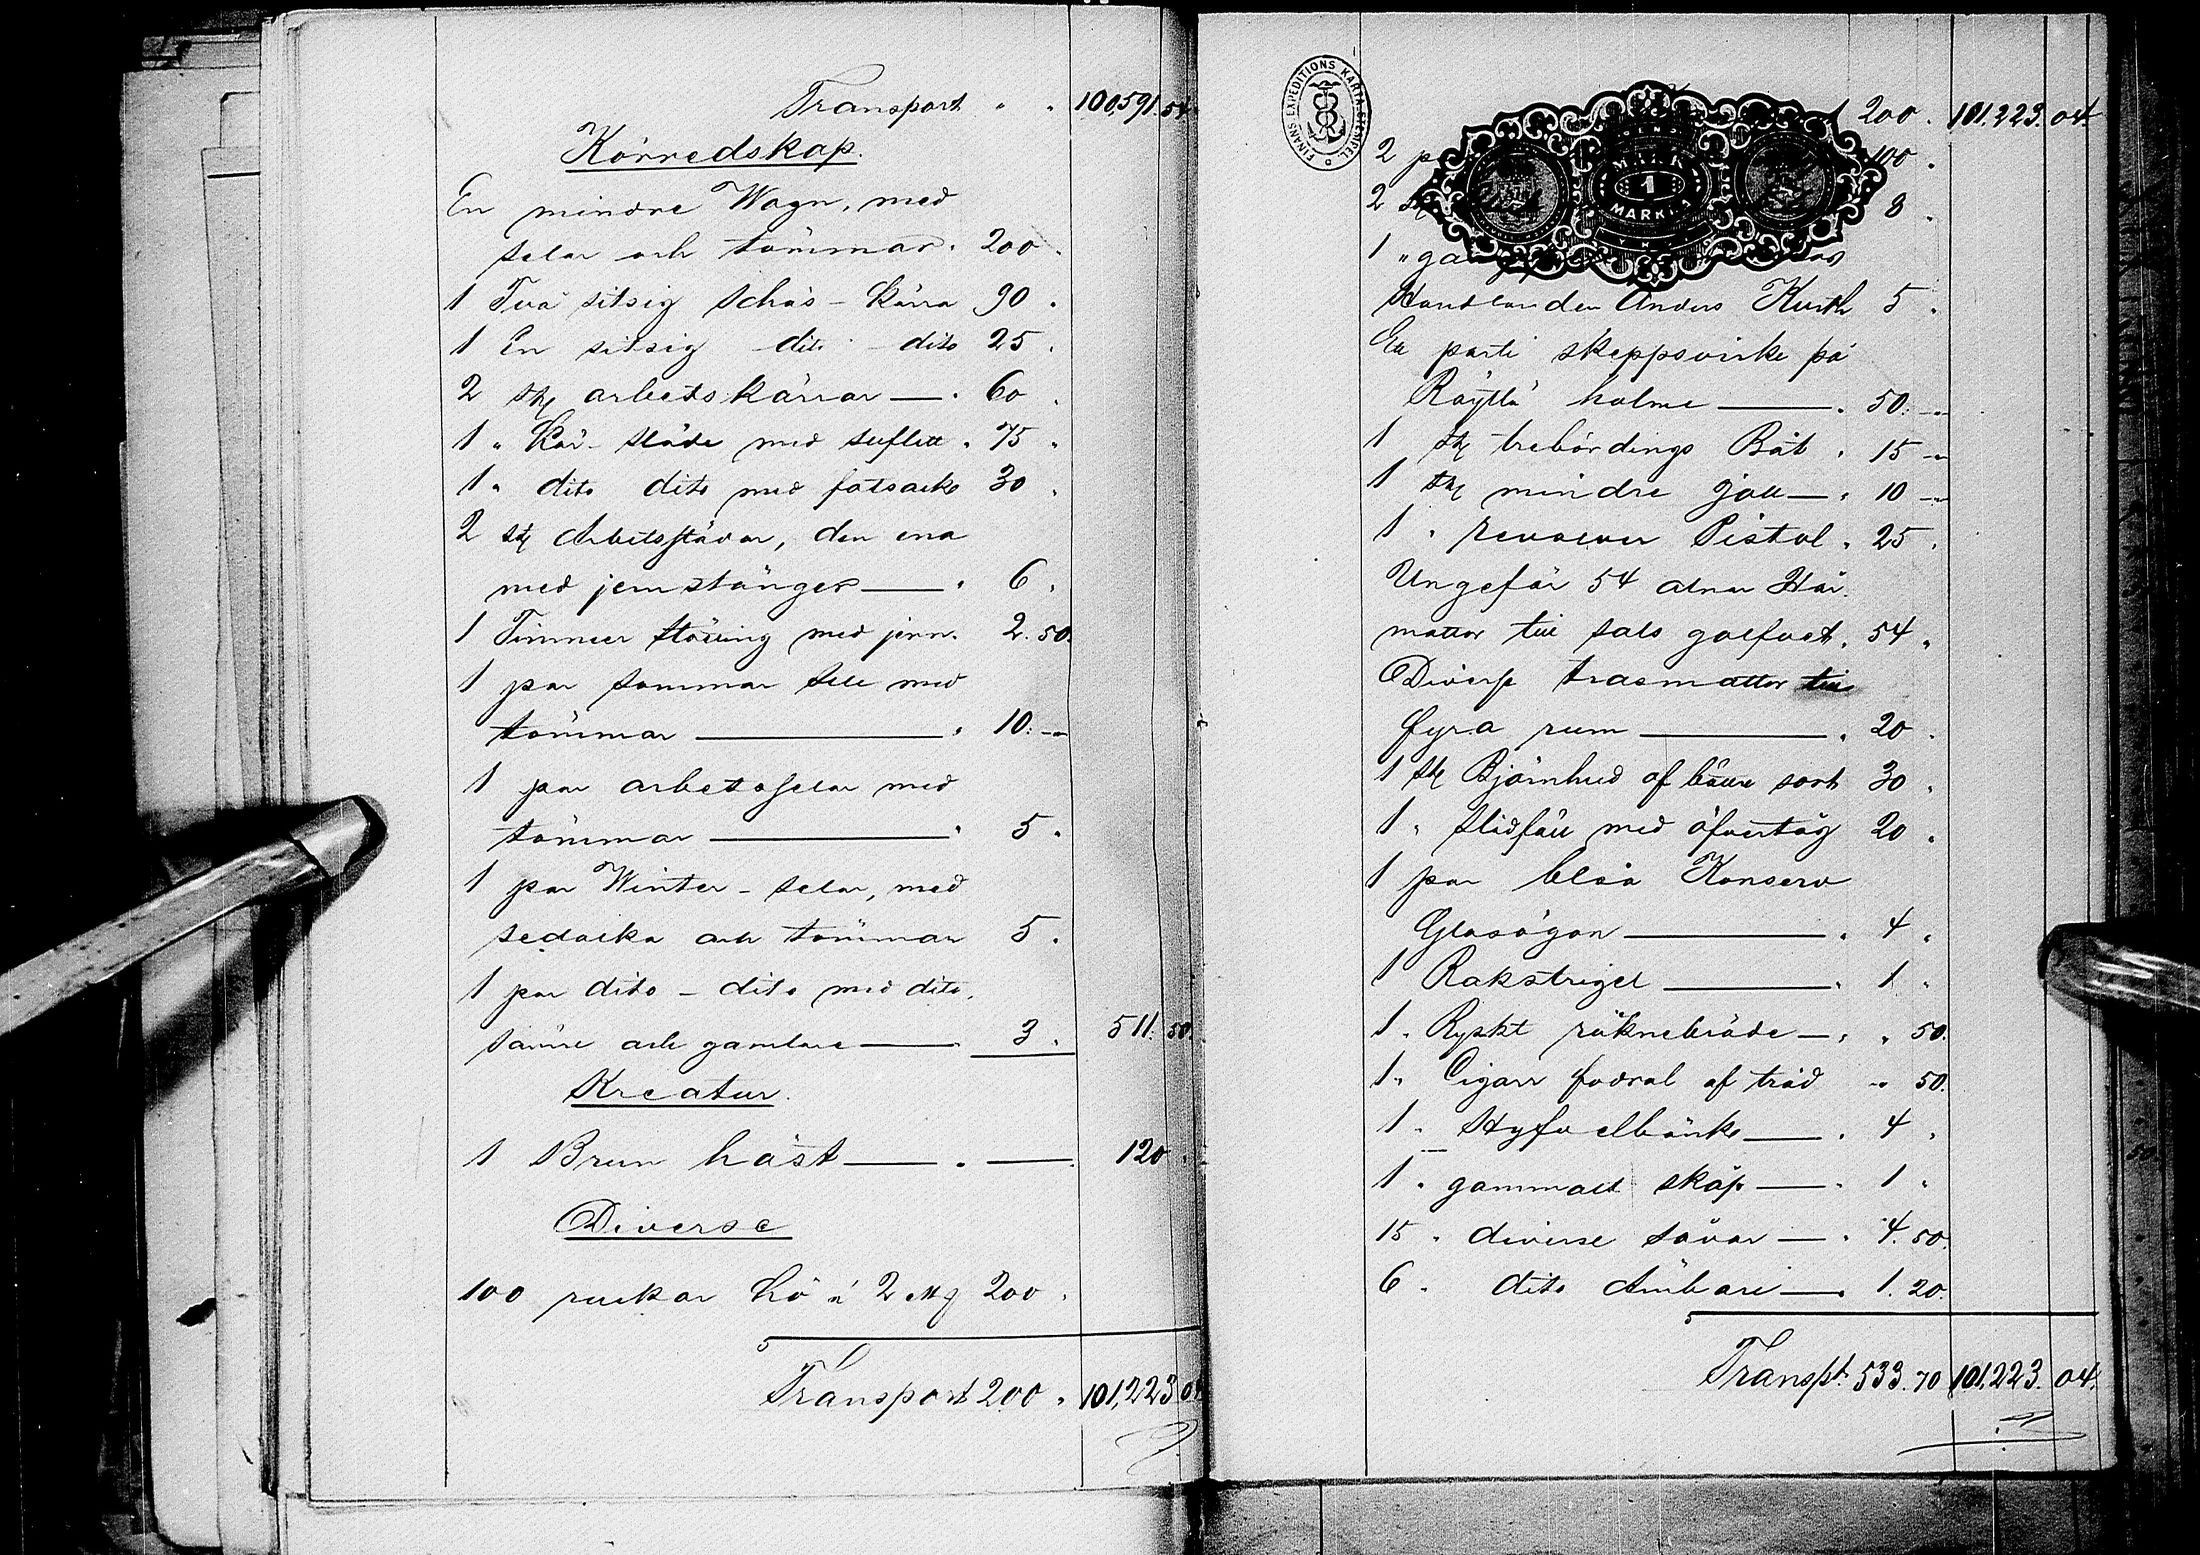 Transport " " 100,591.54.
Körredskap.
En mindre Wagn, med
selar och tömmar. 200 "
1 Två sitsig schäs-kärra 90 "
1 En sitsig dito dito 25 "
2 st arbetskärror — " 60 "
1 " Kär-släde med suflett " 75 "
1 " dito dito med fotsack 30 "
2 st Arbetsslädar, den ena
med jernstänger — " 6 "
1 Timmer stötting med jern. 2.50.
1 par sommar sele med
tömmar — " 10.-"
1 par arbetsselar med
tömmar — " 5 "
1 par Winter-selar, med
sedolka och tömmar 5 "
1 par dito - dito med dito,
sämre och gamlare — 3 " 511.50.
Kreatur.
1 Brun häst — " — 120 "
Diverse
100 ruckor hö á 2 Mg 200 "
Transport 200 " 101,223.04
FINANS EXPEDITIONS KARTA STEMPEL
MARK
1
MARKKA
200 " 101,223.04
2 p 100 "
2 st 8 "
1 " ga
Handlanden Anders Kurth 5 "
Ett parti skeppsvirke på
Röyttä holme — " 50.-"
1 st trebördings Båt " 15 -"
1 st mindre Joll — " 10 -"
1 " revolver Pistol " 25 "
Ungefär 54 alnar Hår.
mattor till sals golfvet " 54 "
Diverse trasmattor till
fyra rum — " 20 "
1 st Björnhud af bättre sort 30 "
1 " slidfäll med öfvertåg 20 "
1 par blåa Konserv
Glasögon — " 4 "
1 Rakstrigel — " 1 "
1 " Ryskt räknebräde — " " 50.
1 " Cigarr fodral af träd -" 50.
1 " Hyfvelbänk — " 4 "
1 " gammalt skåp — " 1 "
15 " diverse såar — " 4.50.
6 " dito Ämbare — " 1.20.
Transpt. 533.70 101,223.04.